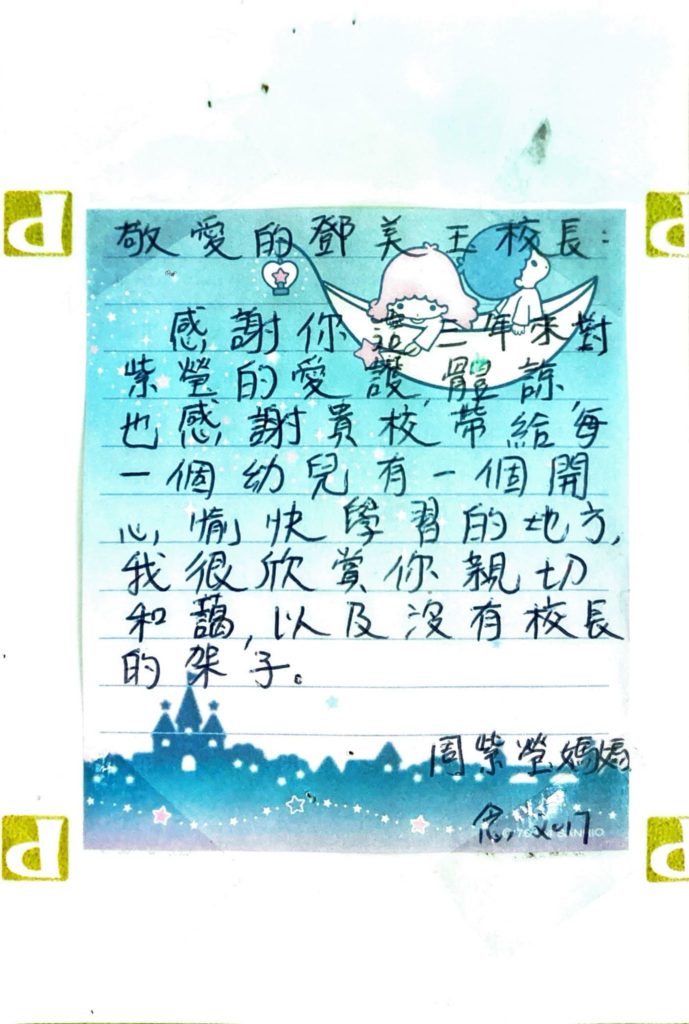 敬愛的鄧美玉校長：
感謝你這三年來對
紫瑩的愛護,體諒,
也感謝貴校帶給每
一個幼兒有一個開
心,愉快學習的地方,
我很欣賞你親切
和藹,以及沒有校長
的架子。
周紫瑩媽媽
2017
SANRIO